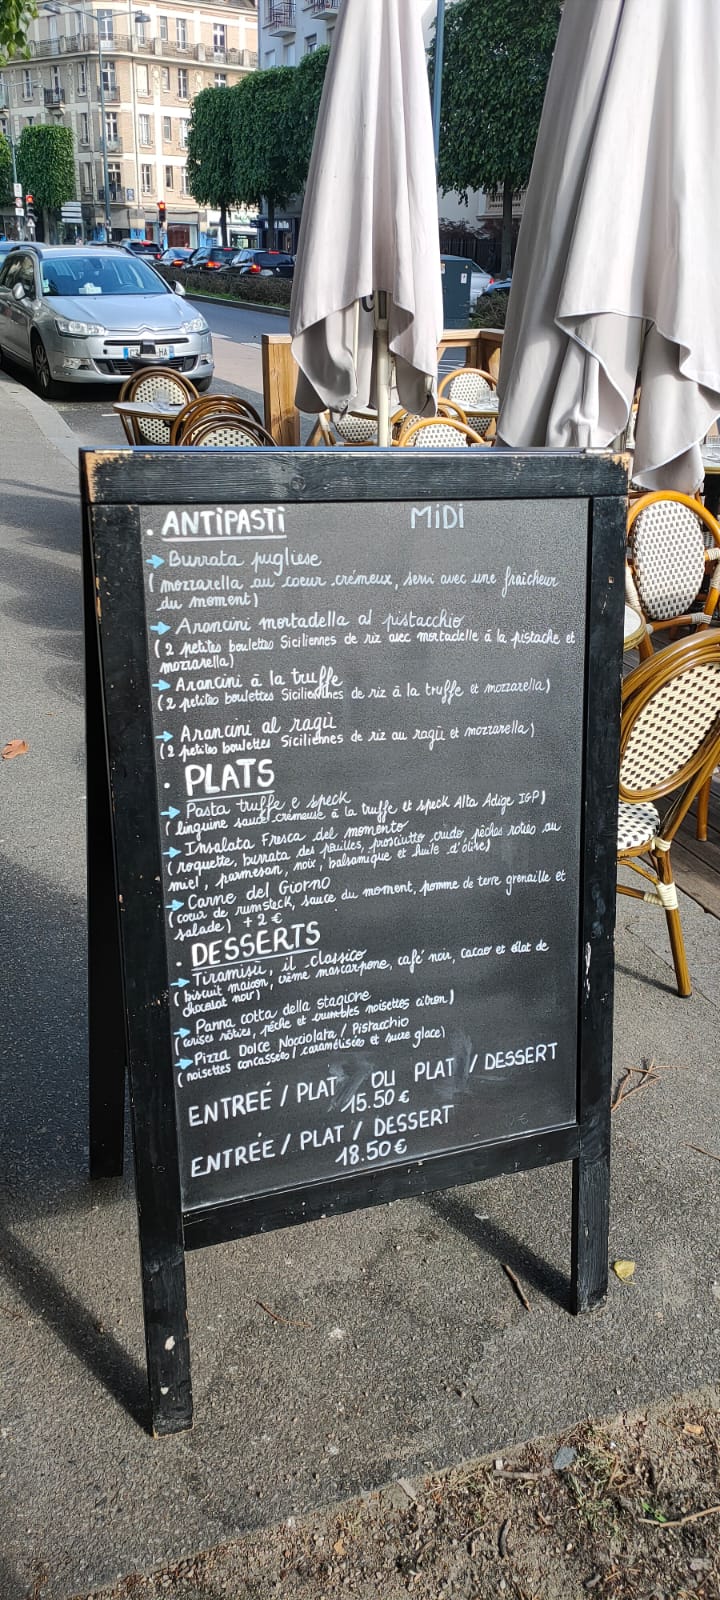 . ANTIPASTI MIDI
→ Burrata pugliese
( mozzarella au coeur crémeux, servi avec une fraîcheur
du moment)
→ Arancini mortadella al pistacchio
( 2 petites boulettes Siciliennes de riz avec mortadelle à la pistache et
mozzarella)
→ Arancini à la truffe
( 2 petites boulettes Siciliennes de riz à la truffe et mozzarella)
→ Arancini al ragù
(2 petites boulettes Siciliennes de riz au ragù et mozzarella)
. PLATS
→ Pasta truffe e speck
( linguine sauce crémeuse à la truffe et speck Alta Adige IGP)
→ Insalata Fresca del momento
( roquette, burrata des pouilles, prosciutto crudo, pêches roties au
miel, parmesan, noix, balsamique et huile d'olive)
→ Carne del Giorno
(coeur de rumsteck, sauce du moment, pomme de terre grenaille et
salade) + 2 €
. DESSERTS
→ Tiramisù, il classico
( biscuit maison, crème mascarpone, café noir, cacao et éclat de
chocolat noir)
→ Panna cotta della stagione
( cerises rôties, pêche et crumbles noisettes citron)
→ Pizza Dolce Nocciolata / Pistacchio
( noisettes concassées / caramélisées et sucre glace)
ENTREÉ / PLAT OU PLAT / DESSERT
15.50 €
ENTRÉE / PLAT / DESSERT
18.50 €